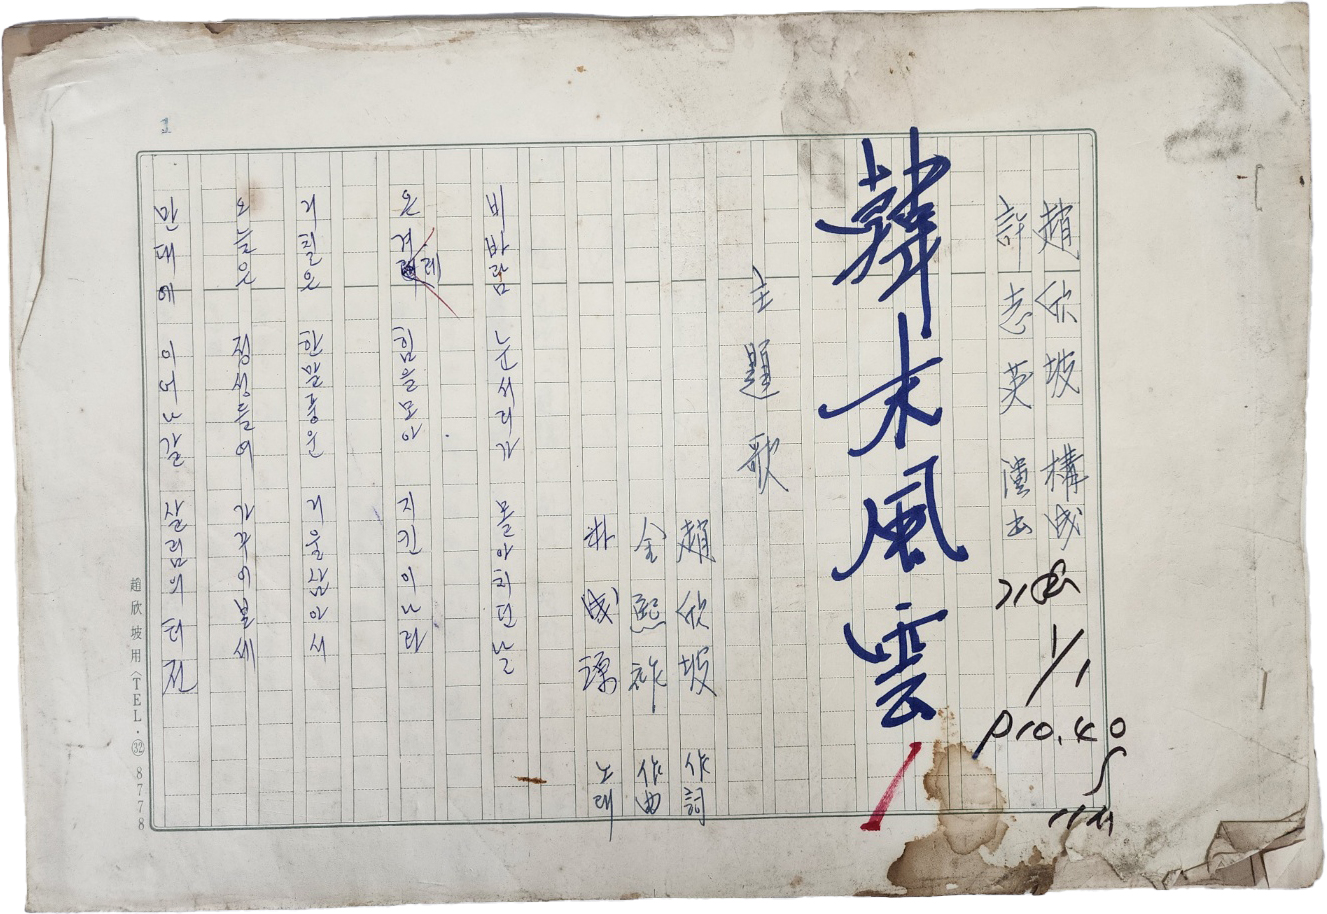 趙欣坡 構成
許志英 演出
1/1
pro. 40
韓末風雲
1
主題歌
趙欣坡 作詞
金熙祚 作曲
朴成源 노래
비바람 눈서리가 몰아치던 날
온 겨레 힘을 모아 지킨 이 나라
거칠은 한말풍운 거울삼아서
오늘은 정성들여 가꾸어보세
만대에 이어나갈 살림의 터전
趙欣坡用 (TEL. ㉜ 8778
1